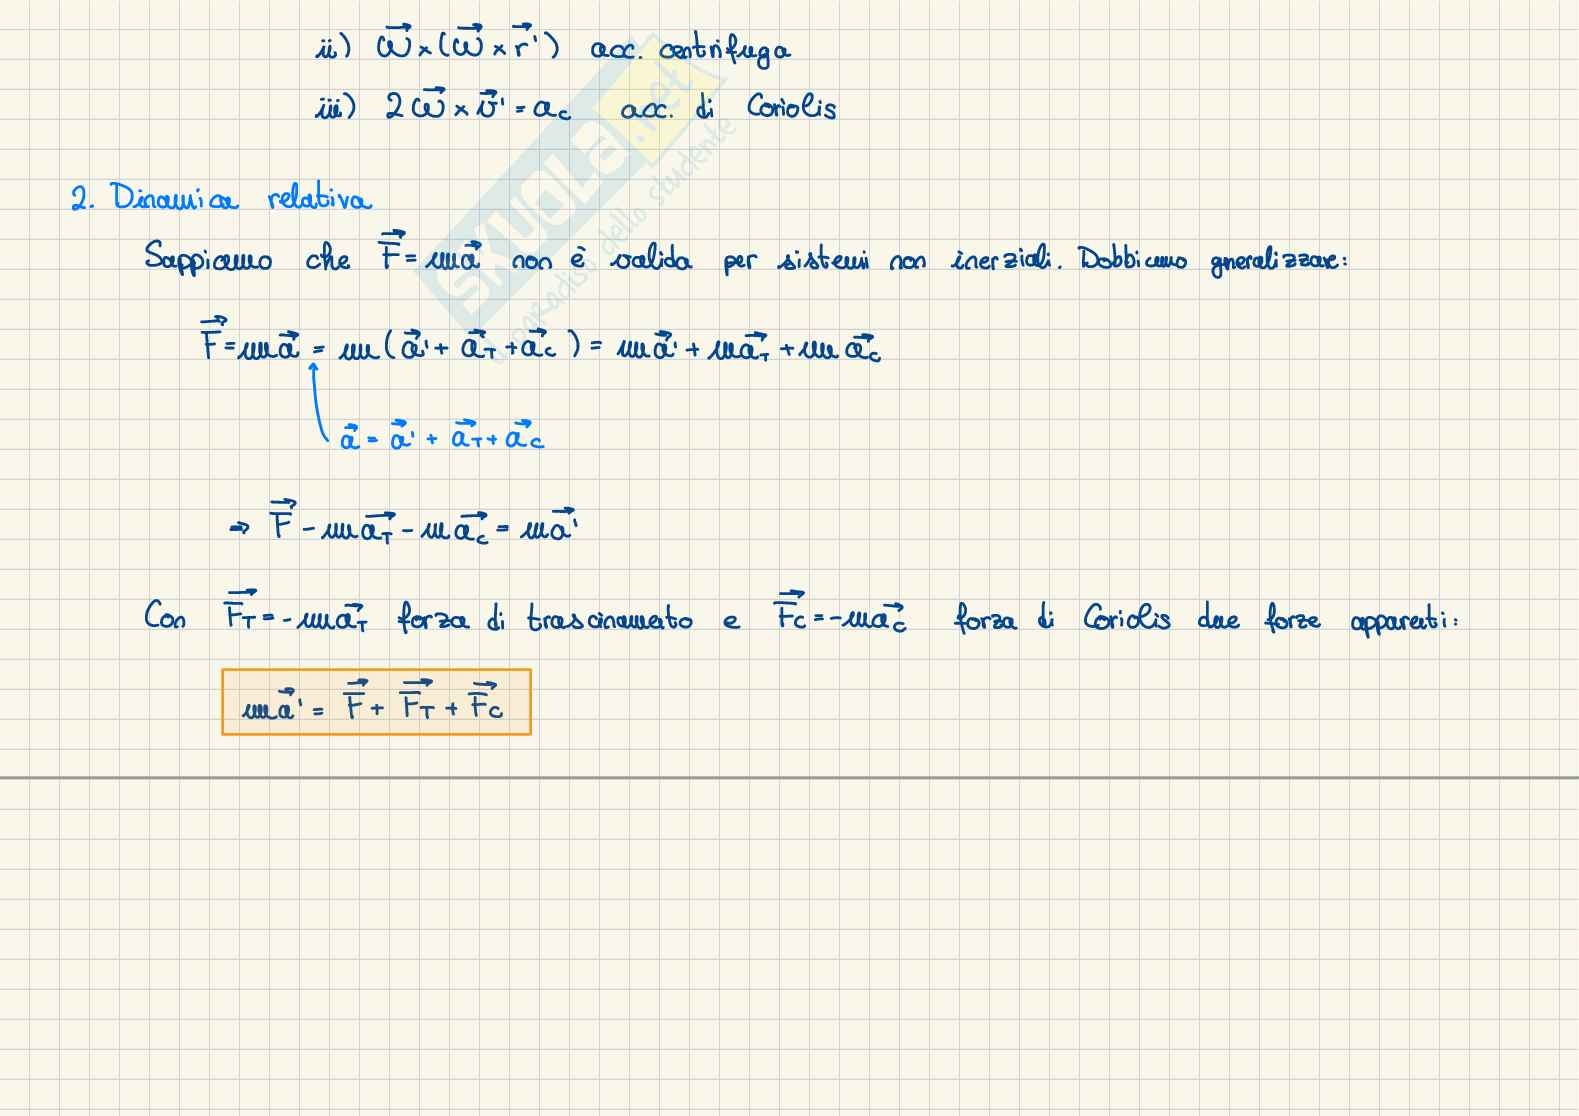 ii) ω⃗ × (ω⃗ × r⃗') acc. centrifuga
iii) 2ω⃗ × v⃗' = a_c acc. di Coriolis
2. Dinamica relativa
Sappiamo che F⃗ = ma⃗ non è valida per sistemi non inerziali. Dobbiamo gneralizzare:
F⃗ = ma⃗ = m(a⃗' + a⃗_T + a⃗_C) = ma⃗' + ma⃗_T + ma⃗_C
a⃗ = a⃗' + a⃗_T + a⃗_C
⇒ F⃗ - ma⃗_T - ma⃗_C = ma⃗'
Con F⃗_T = -ma⃗_T forza di trascinamento e F⃗_C = -ma⃗_C forza di Coriolis due forze apparenti:
ma⃗' = F⃗ + F⃗_T + F⃗_C
SKUOLA.net
il paradiso dello studente